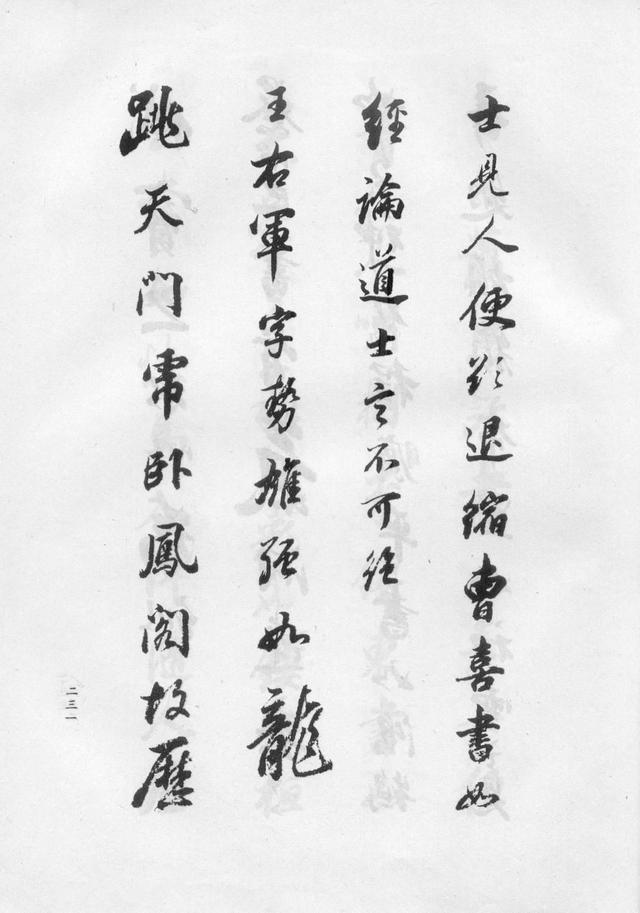 士見人便欲退縮曹喜書如
經論道士言不可絕
王右軍字勢雄强如龍
跳天門虎卧鳳閣故歷
二三一